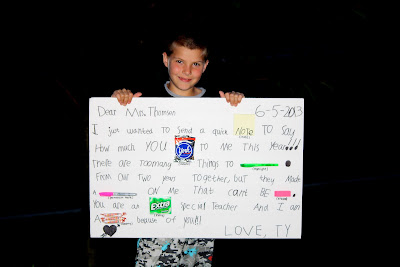 Dear Mrs. Thomson 6-5-2013
I just wanted to Send a quick NOTE TO Say
How much YOU to Me This Year!!!
There are too many Things to
From Our Two years Together, but they Made
a ON Me That can't BE
You are an EXTRA Special Teacher And I am
A because of you!!!
LOVE, TY